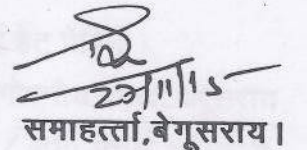 23/11/15
समाहर्त्ता, बेगूसराय।